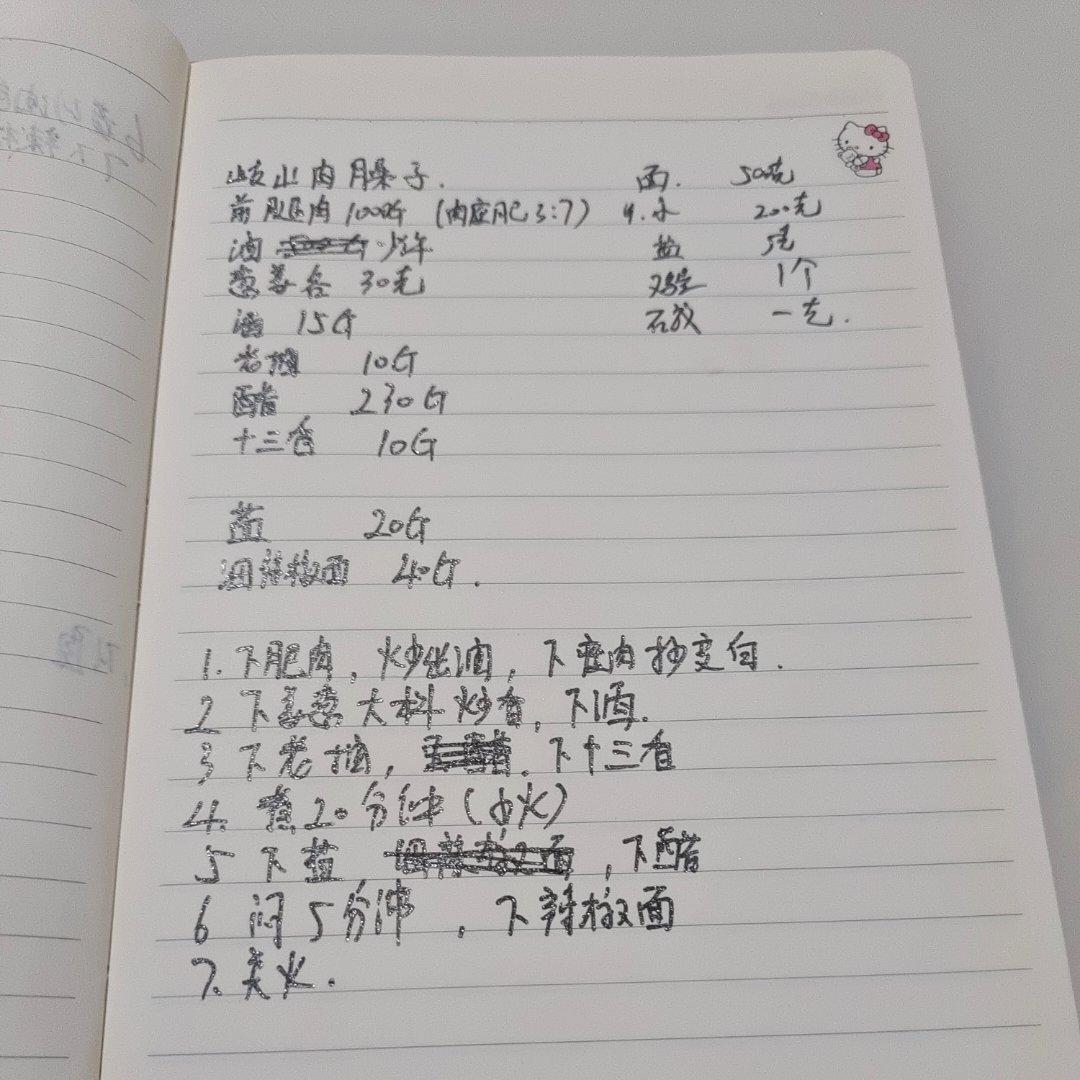 岐山肉臊子.
前腿肉 1000G (肉应肥3:7)
油 少许
葱姜各 30克
酒 15G
老抽 10G
醋 230G
十三香 10G
盐 20G
细辣椒面 40G.
面. 500克
水 200克
盐 5克
鸡蛋 1个
一克.
1. 下肥肉, 炒出油, 下瘦肉抄变白.
2 下姜葱大料炒香, 下酒.
3 下老抽, 下十三香
4. 煮20分钟(小火)
5 下盐, 下醋
6 闷5分钟, 下辣椒面
7. 关火.